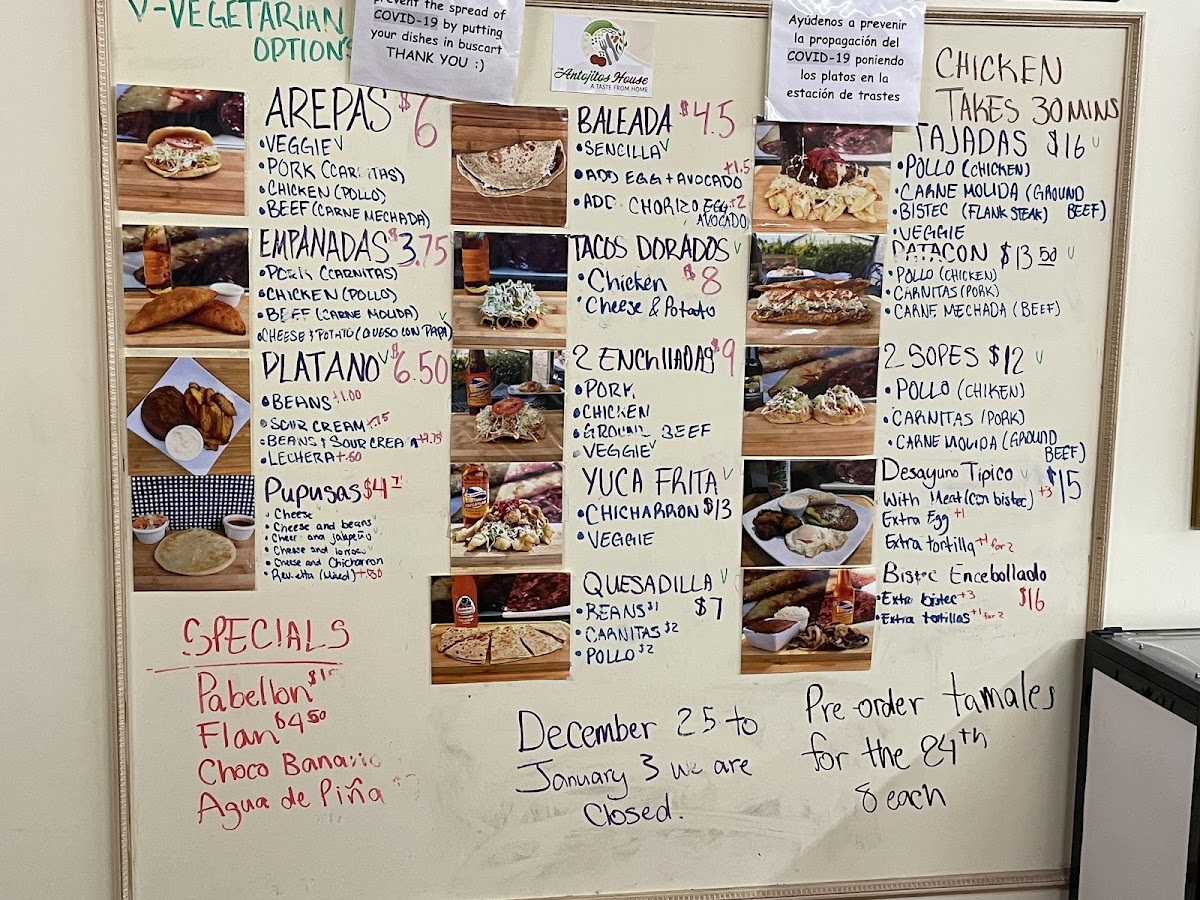 V-VEGETARIAN
OPTIONS
prevent the spread of
COVID-19 by putting
your dishes in buscart
THANK YOU :)
THE
Antojitos House
A TASTE FROM HOME
Ayúdenos a prevenir
la propagación del
COVID-19 poniendo
los platos en la
estación de trastes
CHICKEN
TAKES 30 MINS
AREPAS $6
•VEGGIE V
•PORK (CARNITAS)
•CHICKEN (POLLO)
•BEEF (CARNE MECHADA)
EMPANADAS $3.75
•PORK (CARNITAS)
•CHICKEN (POLLO)
•BEEF (CARNE MOLIDA)
•CHEESE & POTATO (QUESO CON PAPA) V
PLATANO V $6.50
•BEANS $1.00
•SOUR CREAM +.75
•BEANS & SOUR CREAM +1.75
•LECHERA +.50
PUPUSAS $4
Cheese
Cheese and beans V
Cheese and jalapeño V
Cheese and loroco V
Cheese and Chicharron
Revuelta (Mixed) +.50
SPECIALS
Pabellon
Flan $4.50
Choco Banano
Agua de Piña
BALEADA $4.5
•SENCILLA V
•ADD EGG + AVOCADO +1.5
•ADD CHORIZO EGG +2
AVOCADO
TACOS DORADOS V
•Chicken $8
•Cheese & Potato
2 ENCHILADAS $9
•PORK
•CHICKEN
•GROUND BEEF
•VEGGIE V
YUCA FRITA V
•CHICHARRON $13
•VEGGIE
QUESADILLA V
•BEANS $1 $7
•CARNITAS $2
•POLLO $2
December 25 to
January 3 we are
Closed.
TAJADAS $16 V
•POLLO (CHICKEN)
•CARNE MOLIDA (GROUND
BEEF)
•BISTEC (FLANK STEAK)
•VEGGIE
PATACON $13.50 V
•POLLO (CHICKEN)
•CARNITAS (PORK)
•CARNE MECHADA (BEEF)
2 SOPES $12 V
•POLLO (CHIKEN)
•CARNITAS (PORK)
•CARNE MOLIDA (GROUND
BEEF)
Desayuno Tipico V $15
With Meat (con bistec) +3
Extra Egg +1
Extra tortilla +1 for 2
Bistec Encebollado
•Extra bistec +3 $16
•Extra tortillas +1 for 2
Pre-order tamales
for the 24th
8 each